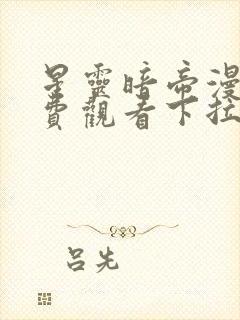 星靈暗帝漫
費觀看下拉
呂先